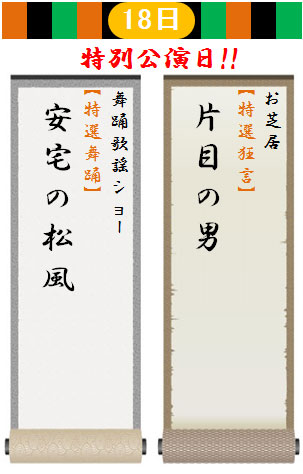 18日
特別公演日!!
お芝居
【特選狂言】
片目の男
舞踊歌謡ショー
【特選舞踊】
安宅の松風